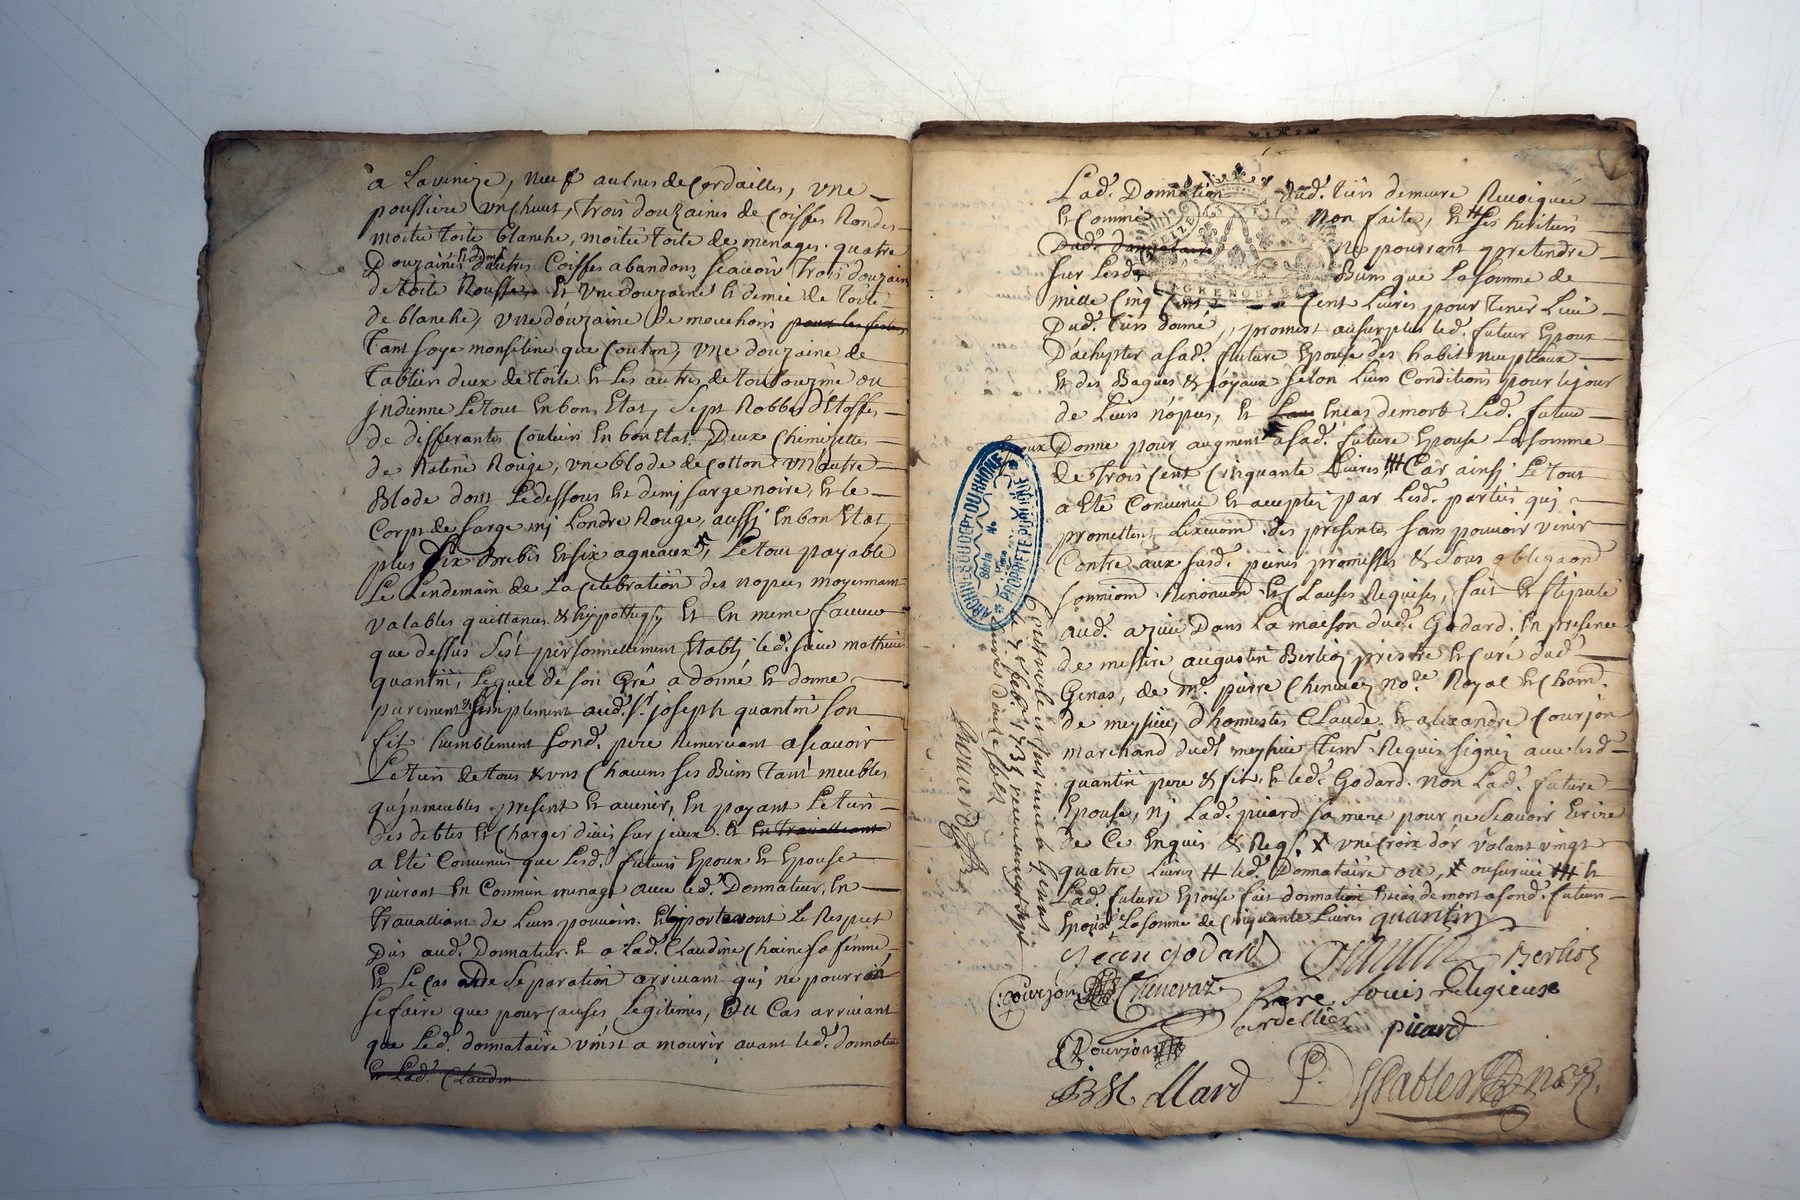 a Lavenize, neuf autres de Cordailles, une
poussiere un chaut, trois douzaines de Coiffes Rondes
moitié toile blanche, moitié toile de menages. quatre
Douzaines et demi d'autres Coiffes abandons scavoir trois douzain
de toile Rousse, et une douzaine et demie de toile
de blanche, une douzaine de mouchoirs pour les festes
tant soye monseline que Couton, une douzaine de
tabliers deux de toile et les autres de ou
jndienne Le tout En bon Etat, Sept Robbes d'Etoffes
de differantes Couleurs En bon Etat. Deux Chemisettes
de Ratine Rouge, une blode de Cotton un autre
Blode dont Le dessous Est demj sarge noire, et le
Corps de sarge mj Londre Rouge, aussj En bon Etat,
plus six Brebis et six agneaux, Le tout payable
Le Lendemain de La Celebration des nopces moyennant
valables quittances & hypotheq; Et En meme faveur
que dessus s'est personnellement Etablj led. sieur mathieu
quantin, Lequel de son Gré a donné et donne
purement & simplement aud. Sr. joseph quantin son
fils humblement Lond. pere Remerciant ascavoir
Le tiers de tous & uns Chacuns ses Biens tant meubles
qu'jmmeubles present et avenir, En payant Le tiers
des debtes et charges deües sur jceux. et En travalliant
a Eté Convenus que Lesd. futurs Epoux et Epouse
vivront En Commun menage avec led. Donnateur, En
travalliant de Leurs pouvoirs. Et portaront Le Respect
Dus aud. Donnateur. et a Lad. Claudine Chaine sa femme
Et Le cas de Separation arrivant quj ne pourroit
se faire que pour causes Legitimes, Ou Cas arrivant
que Led. donnataire vinst a mourir avant led. donnateur
et Lad. Claudin
Lad. Donnation dud. tiers demeure Revoquée
Et Comme non faite, Et ses heritiers
Dud. donnataire ne pourront pretendre
sur Lesd. Biens que La somme de
mille Cinq Cens Cent Livres pour tenir Lieu
Dud. tiers donné, promest au surplus led. futur Epoux
D'achepter a sad. future Epouse des habits neuptiaux
et des Bagues & Joyaux selon Leurs Conditions pour le jour
de Leurs nopces, Et En cas de mort Led. futur
Epoux Donne pour augment a sad. future Epouse La somme
de trois Cent Cinquante Livres Car ainsj Le tout
a Eté Convenu Et accepté par Lesd. parties quj
promettent des presentes sans pouvoir venir
Contre aux susd. peines promisses & sous
Et Clauses Requises, fait Et stipulé
aud. azieu Dans La maison dud. Godard. En presence
de messire augustin Berlioz prestre Et Curé dud.
Genas, de me. pierre Chenevaz nore. Royal Et Cham.
de meyssiez, d'honnestes Claude Et alexandre Courjon
marchand dud. meyssiez tem. Requis signés avec lesd.
quantin pere & fils, et led. Godard. non Lad. future
Epouse, nj Lad. picard sa mere pour ne scavoir Ecrire
de Ce Enquis & Req. X une Croix d'or valant vingt
quatre Livres led. Donnataire ou, et
Lad. future Epouse fait donnation En cas de mort a sond. futur
Epoux La somme de Cinquante Livres quantin
Jean Godard Berlioz
Courjon Chenevaz frere Louis religieux
Cordellier picard
Courjon
Controlé et
1735
GRENOBLE
ARCHIVES DU DEPT DU RHONE
Série
No
PROPRIETE PUBLIQUE